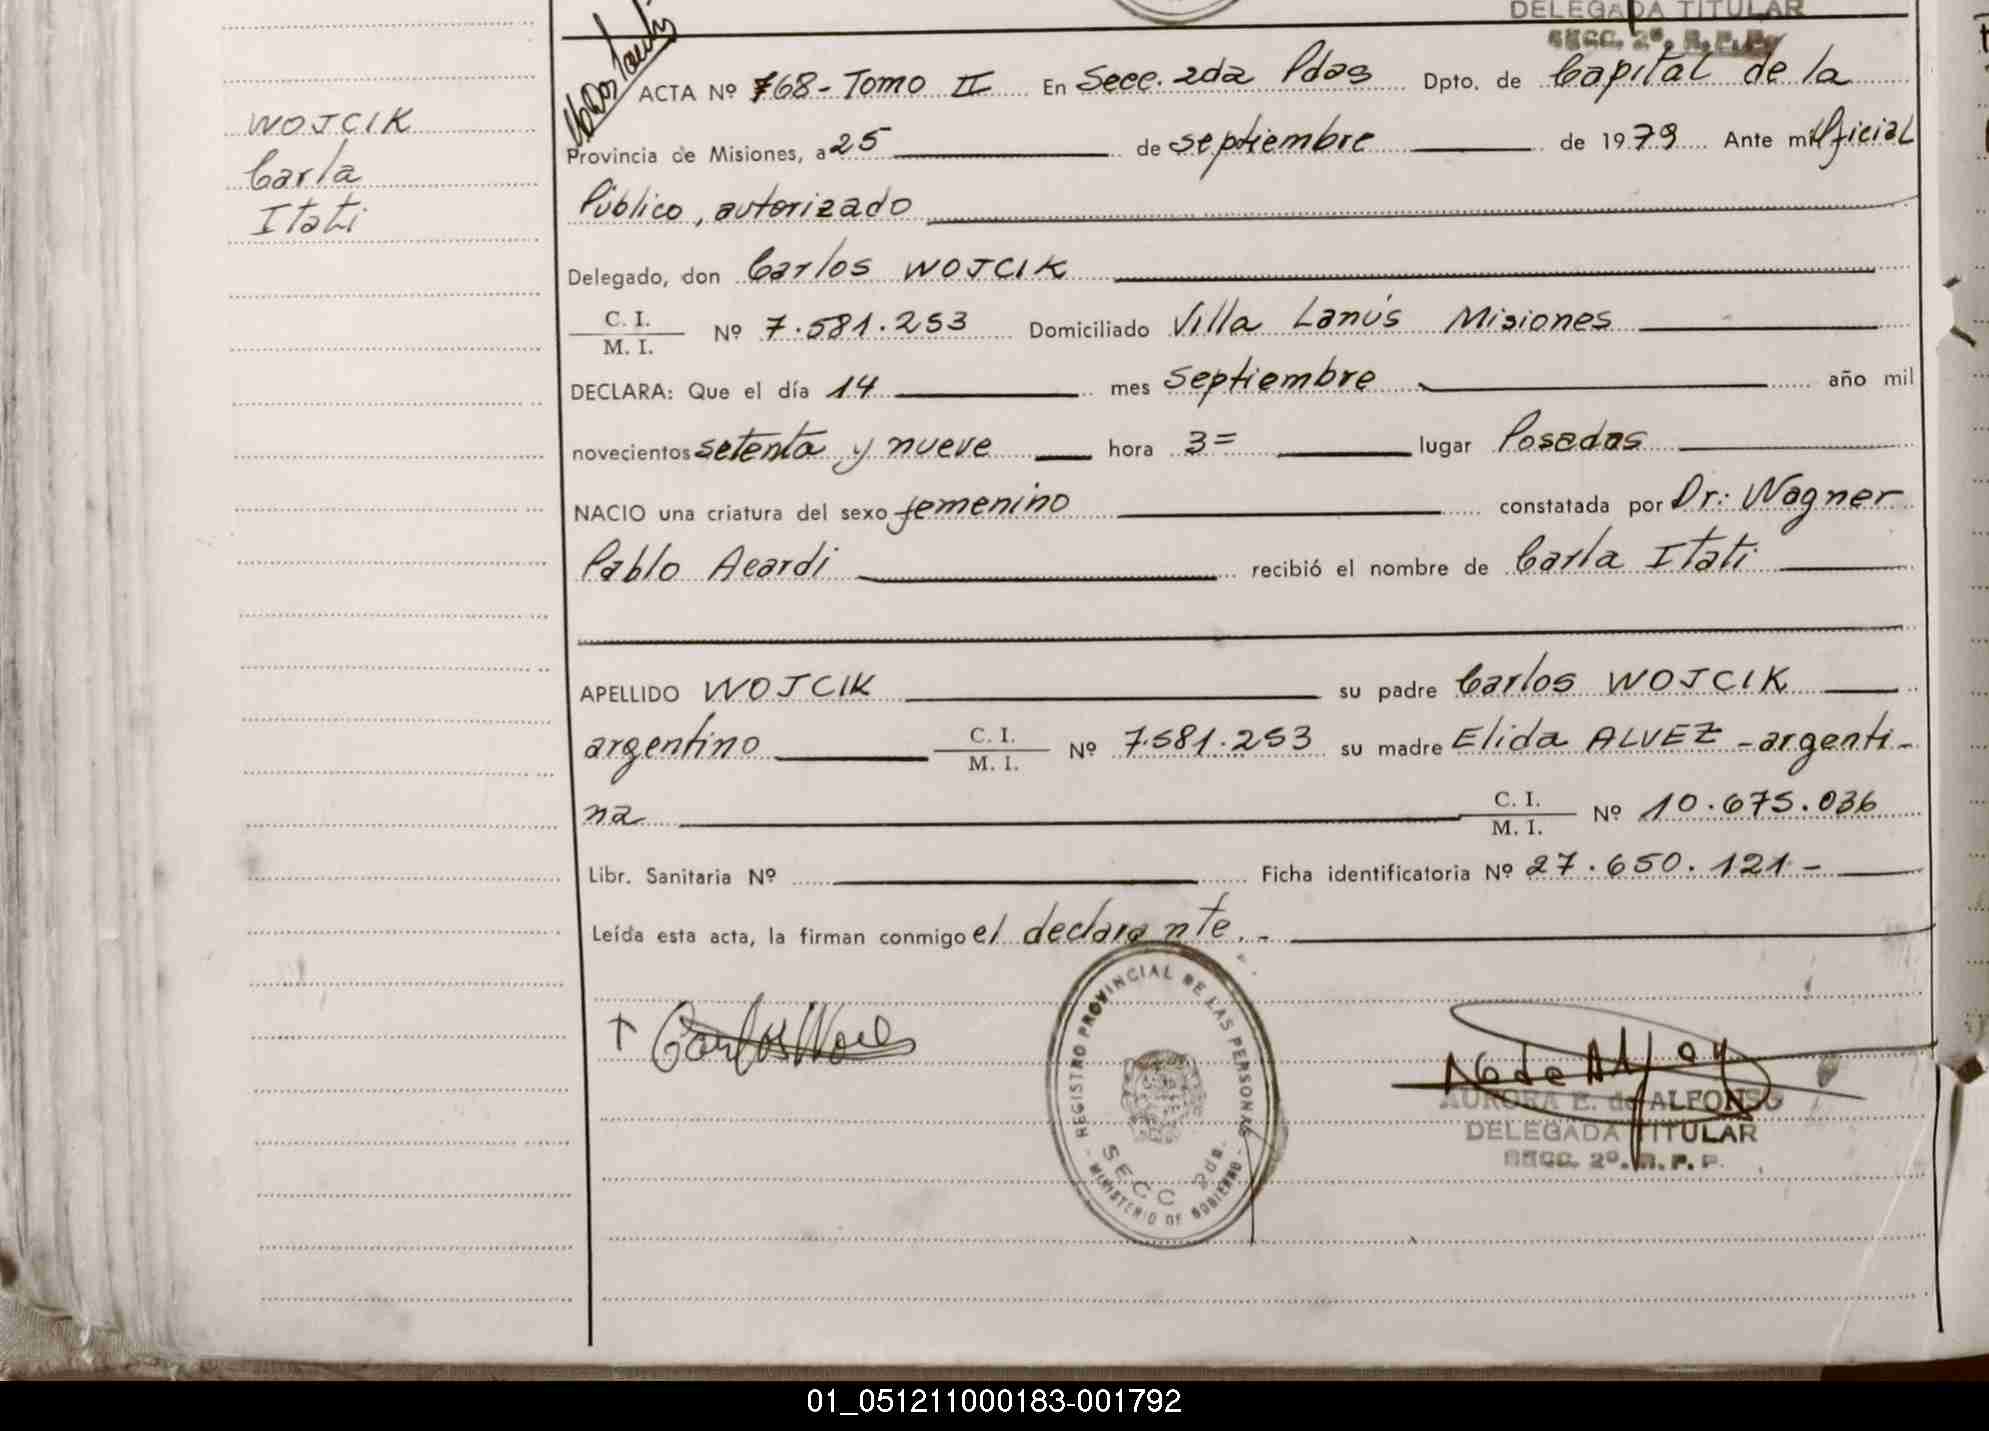 DELEGADA TITULAR
SECC. 2º. R. P. P.
WOJCIK
Carla
Itati
ACTA Nº 768 - Tomo II En Secc. 2da Pdas Dpto. de Capital de la
Provincia de Misiones, a 25 de septiembre de 1979 Ante mi Oficial
Público, autorizado
Delegado, don Carlos WOJCIK
C. I.
M. I. Nº 7.581.253 Domiciliado Villa Lanús Misiones
DECLARA: Que el día 14 mes septiembre año mil
novecientos setenta y nueve hora 3= lugar Posadas
NACIO una criatura del sexo femenino constatada por Dr: Wagner
Pablo Acardi recibió el nombre de Carla Itati
APELLIDO WOJCIK su padre Carlos WOJCIK
argentino C. I.
M. I. Nº 7.581.253 su madre Elida ALVEZ - argenti-
na C. I.
M. I. Nº 10.675.036
Libr. Sanitaria Nº Ficha identificatoria Nº 27.650.121 -
Leída esta acta, la firman conmigo el declarante. -
REGISTRO PROVINCIAL DE LAS PERSONAS
SECC 2da.
- MINISTERIO DE GOBIERNO -
AURORA E. de ALFONSO
DELEGADA TITULAR
SECC. 2º. R. P. P.
01_051211000183-001792